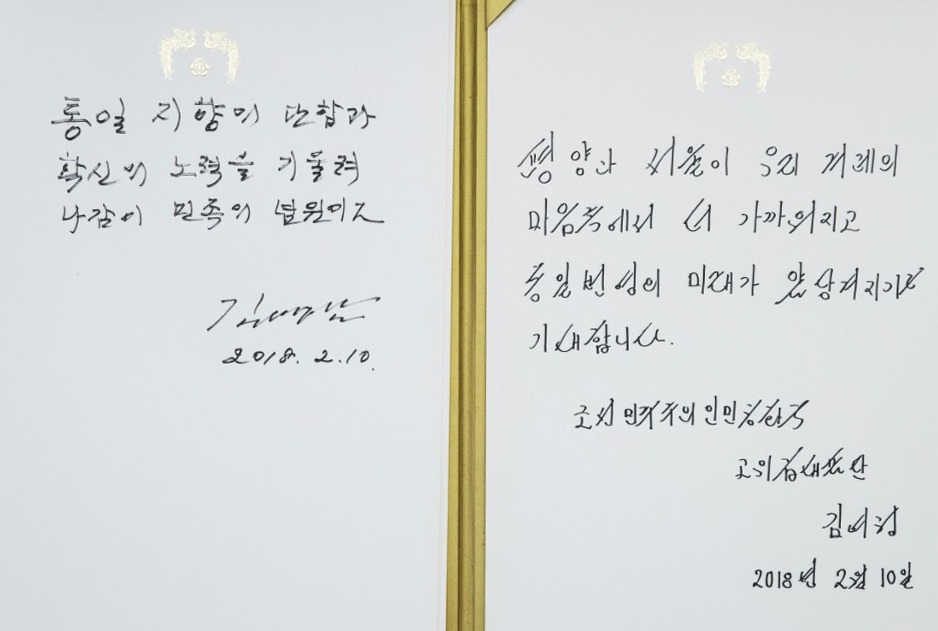 통일 지향의 단합과
확신의 노력을 기울려
나감이 민족의 념원이고
김영남
2018. 2. 10.
평양과 서울이 우리 겨레의
마음속에서 더 가까워지고
통일번영의 미래가 앞당겨지기를
기대합니다.
조선민주주의인민공화국
고위급대표단
김여정
2018년 2월 10일